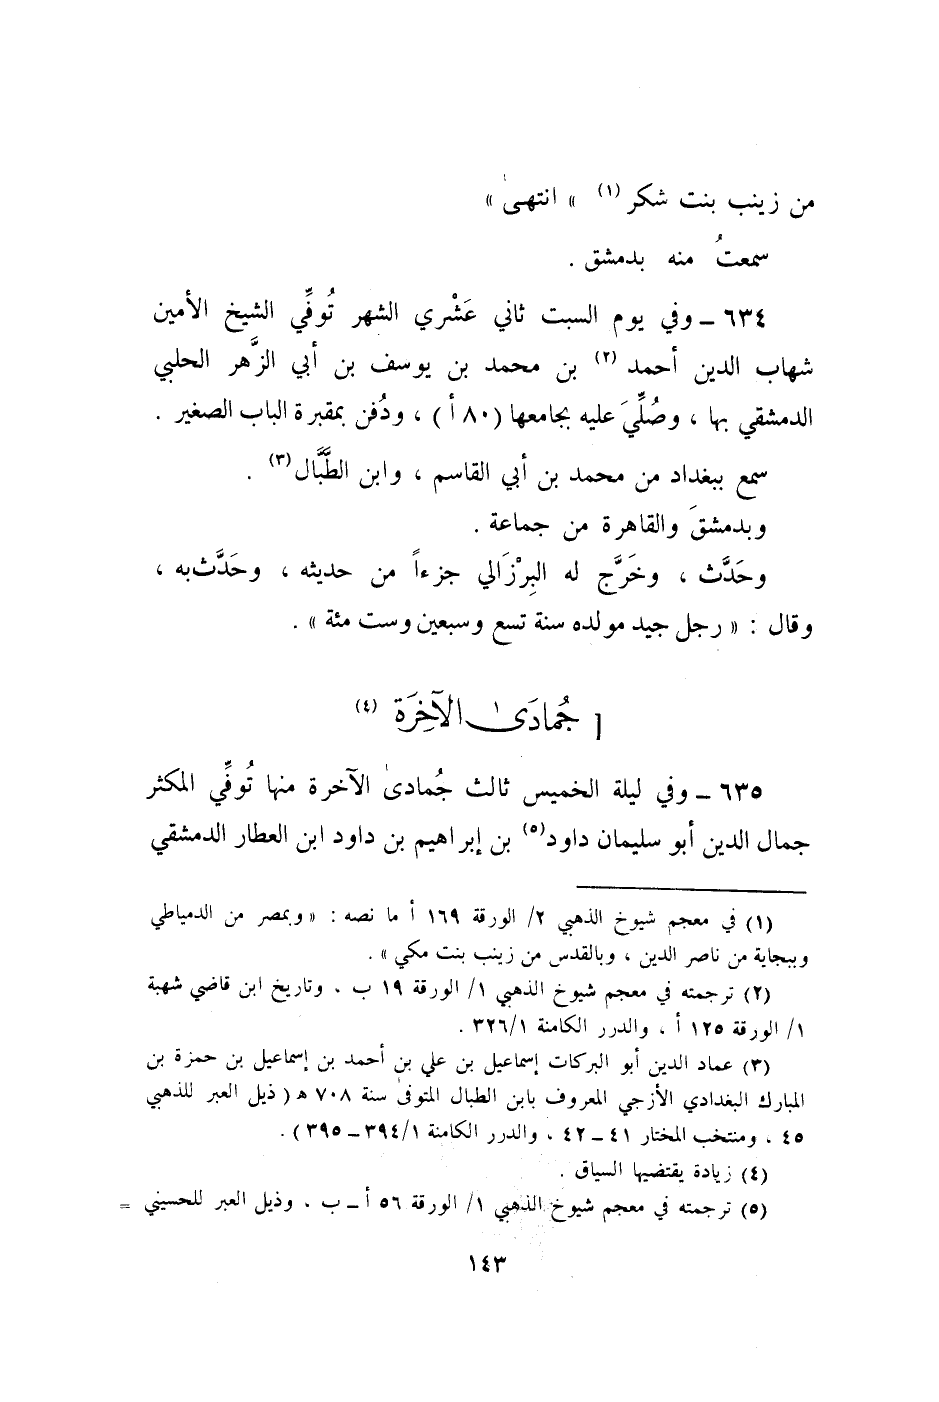 من زينب بنت شكر (١) » انتهىٰ »
سمعتُ منه بدمشق .
٦٣٤ – وفي يوم السبت ثاني عَشْري الشهر تُوفِّي الشيخ الأمين
شهاب الدين أحمد (٢) بن محمد بن يوسف بن أبي الزَّهر الحلبي
الدمشقي بها ، وصُلِّيَ عليه بجامعها (٨٠ أ) ، ودُفن بمقبرة الباب الصغير .
سمع ببغداد من محمد بن أبي القاسم ، وابن الطَّبَّال (٣) .
وبدمشقَ والقاهرة من جماعة .
وحَدَّث ، وخَرَّج له البِرْزَالي جزءاً من حديثه ، وحَدَّث به ،
وقال : « رجل جيد مولده سنة تسع وسبعين وست مئة » .
[ جُمادَىٰ الآخِرَة (٤)
٦٣٥ – وفي ليلة الخميس ثالث جُمادىٰ الآخرة منها تُوفِّي المكثر
جمال الدين أبو سليمان داود (٥) بن إبراهيم بن داود ابن العطار الدمشقي
(١) في معجم شيوخ الذهبي ٢/ الورقة ١٦٩ أ ما نصه : « وبمصر من الدمياطي
وببجاية من ناصر الدين ، وبالقدس من زينب بنت مكي » .
(٢) ترجمته في معجم شيوخ الذهبي ١/ الورقة ١٩ ب ، وتاريخ ابن قاضي شهبة
١/ الورقة ١٢٥ أ ، والدرر الكامنة ٣٢٦/١ .
(٣) عماد الدين أبو البركات إسماعيل بن علي بن أحمد بن إسماعيل بن حمزة بن
المبارك البغدادي الأزجي المعروف بابن الطبال المتوفىٰ سنة ٧٠٨ هـ ( ذيل العبر للذهبي
٤٥ ، ومنتخب المختار ٤١ – ٤٢ ، والدرر الكامنة ٣٩٤/١ – ٣٩٥ ) .
(٤) زيادة يقتضيها السياق .
(٥) ترجمته في معجم شيوخ الذهبي ١/ الورقة ٥٦ أ – ب ، وذيل العبر للحسيني =
١٤٣